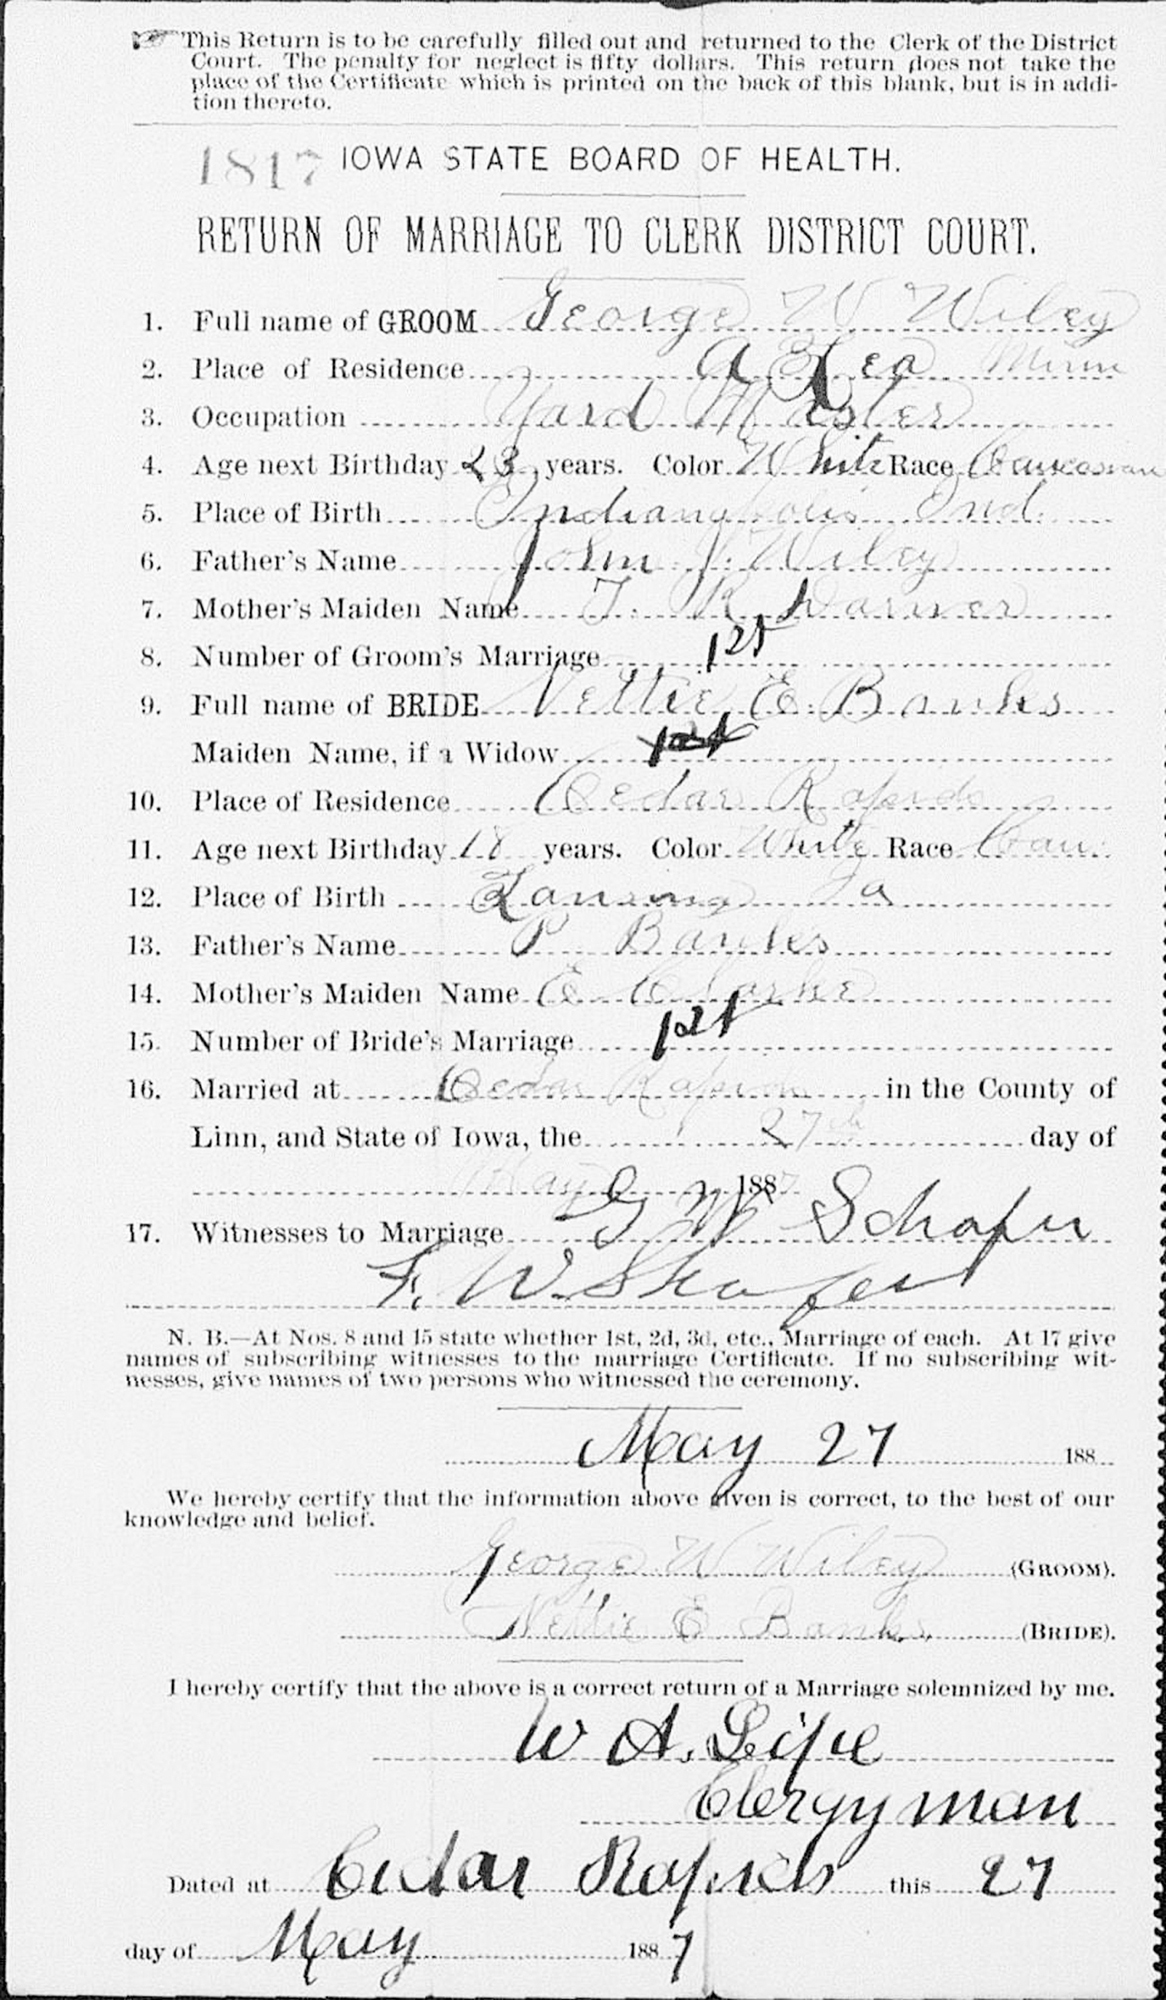 This Return is to be carefully filled out and returned to the Clerk of the District
Court. The penalty for neglect is fifty dollars. This return does not take the
place of the Certificate which is printed on the back of this blank, but is in addi-
tion thereto.
1817 IOWA STATE BOARD OF HEALTH.
RETURN OF MARRIAGE TO CLERK DISTRICT COURT.
1. Full name of GROOM George W Wiley
2. Place of Residence Minn
3. Occupation Yard Master
4. Age next Birthday 23 years. Color White Race Caucasian
5. Place of Birth Indianapolis Ind.
6. Father's Name John J. Wiley
7. Mother's Maiden Name T. R. Warner
8. Number of Groom's Marriage 1st
9. Full name of BRIDE Nettie E. Banks
Maiden Name, if a Widow
10. Place of Residence Cedar Rapids
11. Age next Birthday 18 years. Color White Race Cau.
12. Place of Birth Lansing Ia
13. Father's Name P Banks
14. Mother's Maiden Name E Clarke
15. Number of Bride's Marriage 1st
16. Married at Cedar Rapids in the County of
Linn, and State of Iowa, the 27th day of
May 1887
17. Witnesses to Marriage G W Schafer
F. W. Shafer
N. B.—At Nos. 8 and 15 state whether 1st, 2d, 3d, etc., Marriage of each. At 17 give
names of subscribing witnesses to the marriage Certificate. If no subscribing wit-
nesses, give names of two persons who witnessed the ceremony.
May 27 188
We hereby certify that the information above given is correct, to the best of our
knowledge and belief.
George W Wiley (GROOM).
Nettie E Banks (BRIDE).
I hereby certify that the above is a correct return of a Marriage solemnized by me.
W A. Lipe
Clergyman
Dated at Cedar Rapids this 27
day of May 1887